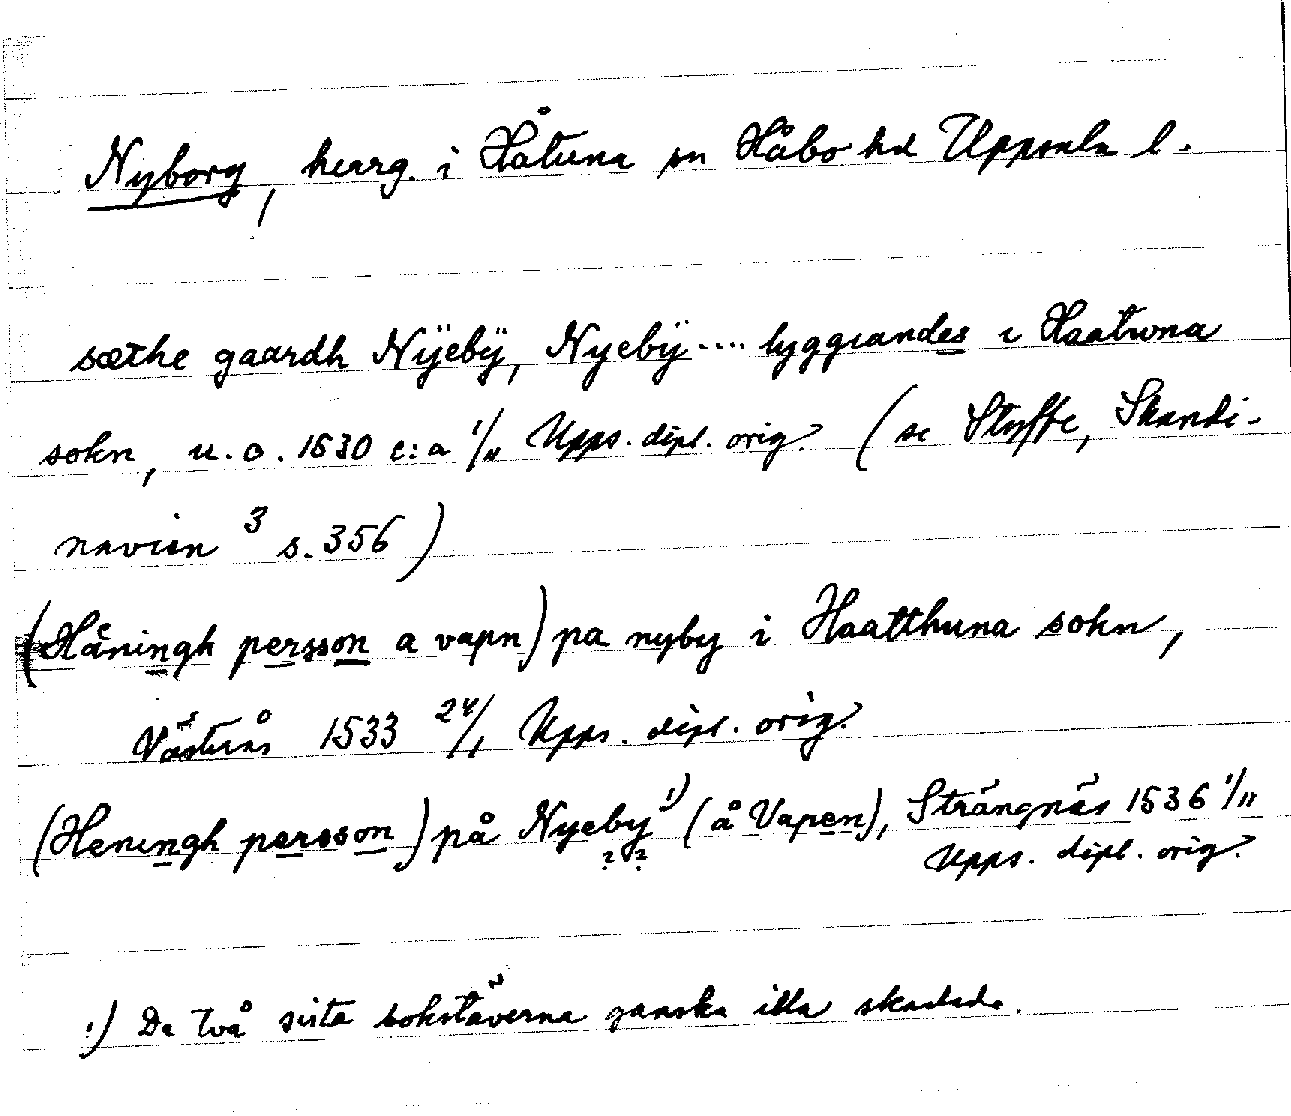 Nyborg, herrg. i Håtuna sn Håbo hd Uppsala l.
sæthe gaardh Nÿebÿ, Nyebÿ .... lyggiandes i Haatwna
sokn, u.o. 1530 c:a 1/11 Upps. dipl. orig. (se Styffe, Skandi-
navien 3 s. 356)
(Häningh persson a vapn) pa nyby i Haatthuna sokn,
Västerås 1533 24/1 Upps. dipl. orig.
(Heningh persson) på Nyeby 1) (å Vapen), Strängnäs 1536 1/11
? ? Upps. dipl. orig.
1) De två sista bokstäverna ganska illa skadade.